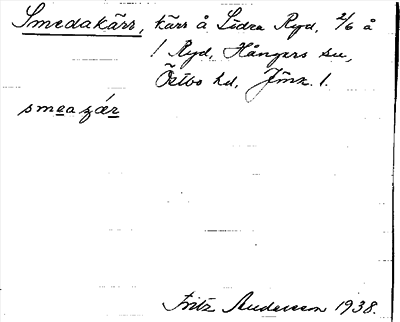 Smedakärr, kärr å Södra Ryd, 2/6 å
1 Ryd, Hångers sn,
Östbo hd, Jönk. l.
smeaʒær
Fritz Andersson 1938.